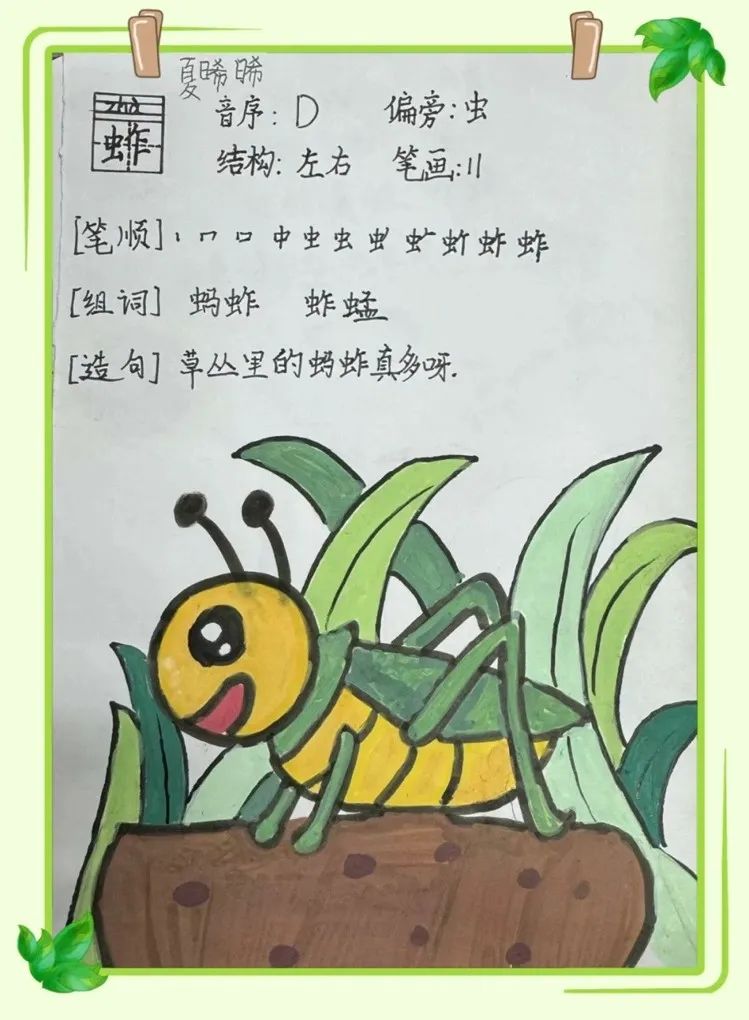 夏晞晞
zhà
蚱
音序: D 偏旁: 虫
结构: 左右 笔画: 11
[笔顺] 丨 冂 口 中 虫 虫 蚱 蚱
[组词] 蚂蚱 蚱蜢
[造句] 草丛里的蚂蚱真多呀.